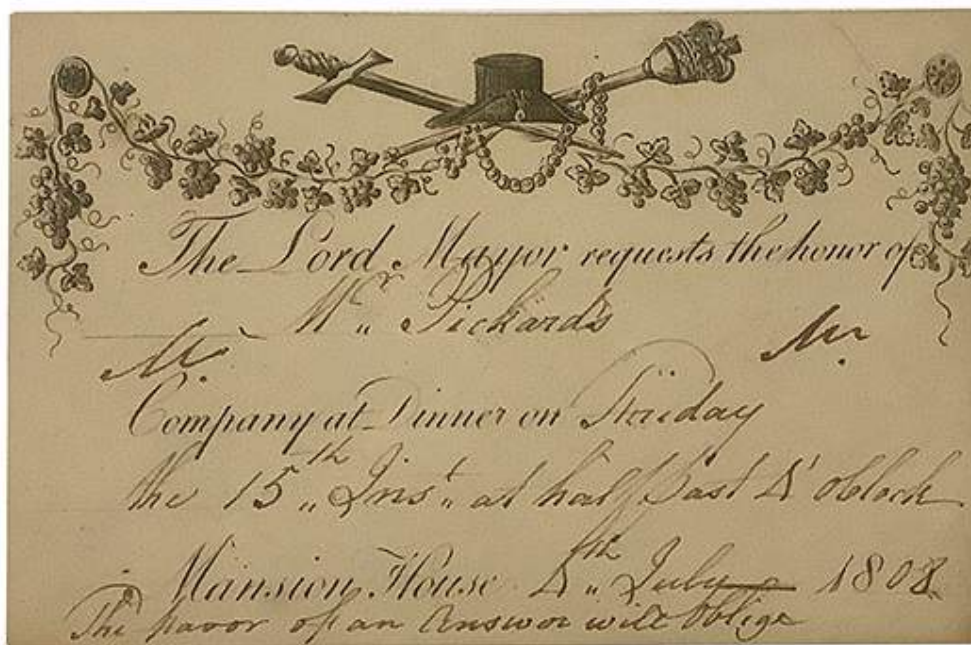 The Lord Mayor requests the honor of
Mr. Pickards
Company at Dinner on Friday
the 15th Inst. at half past 5 oClock
Mansion House 5th July 1808
The favor of an Answer will Oblige